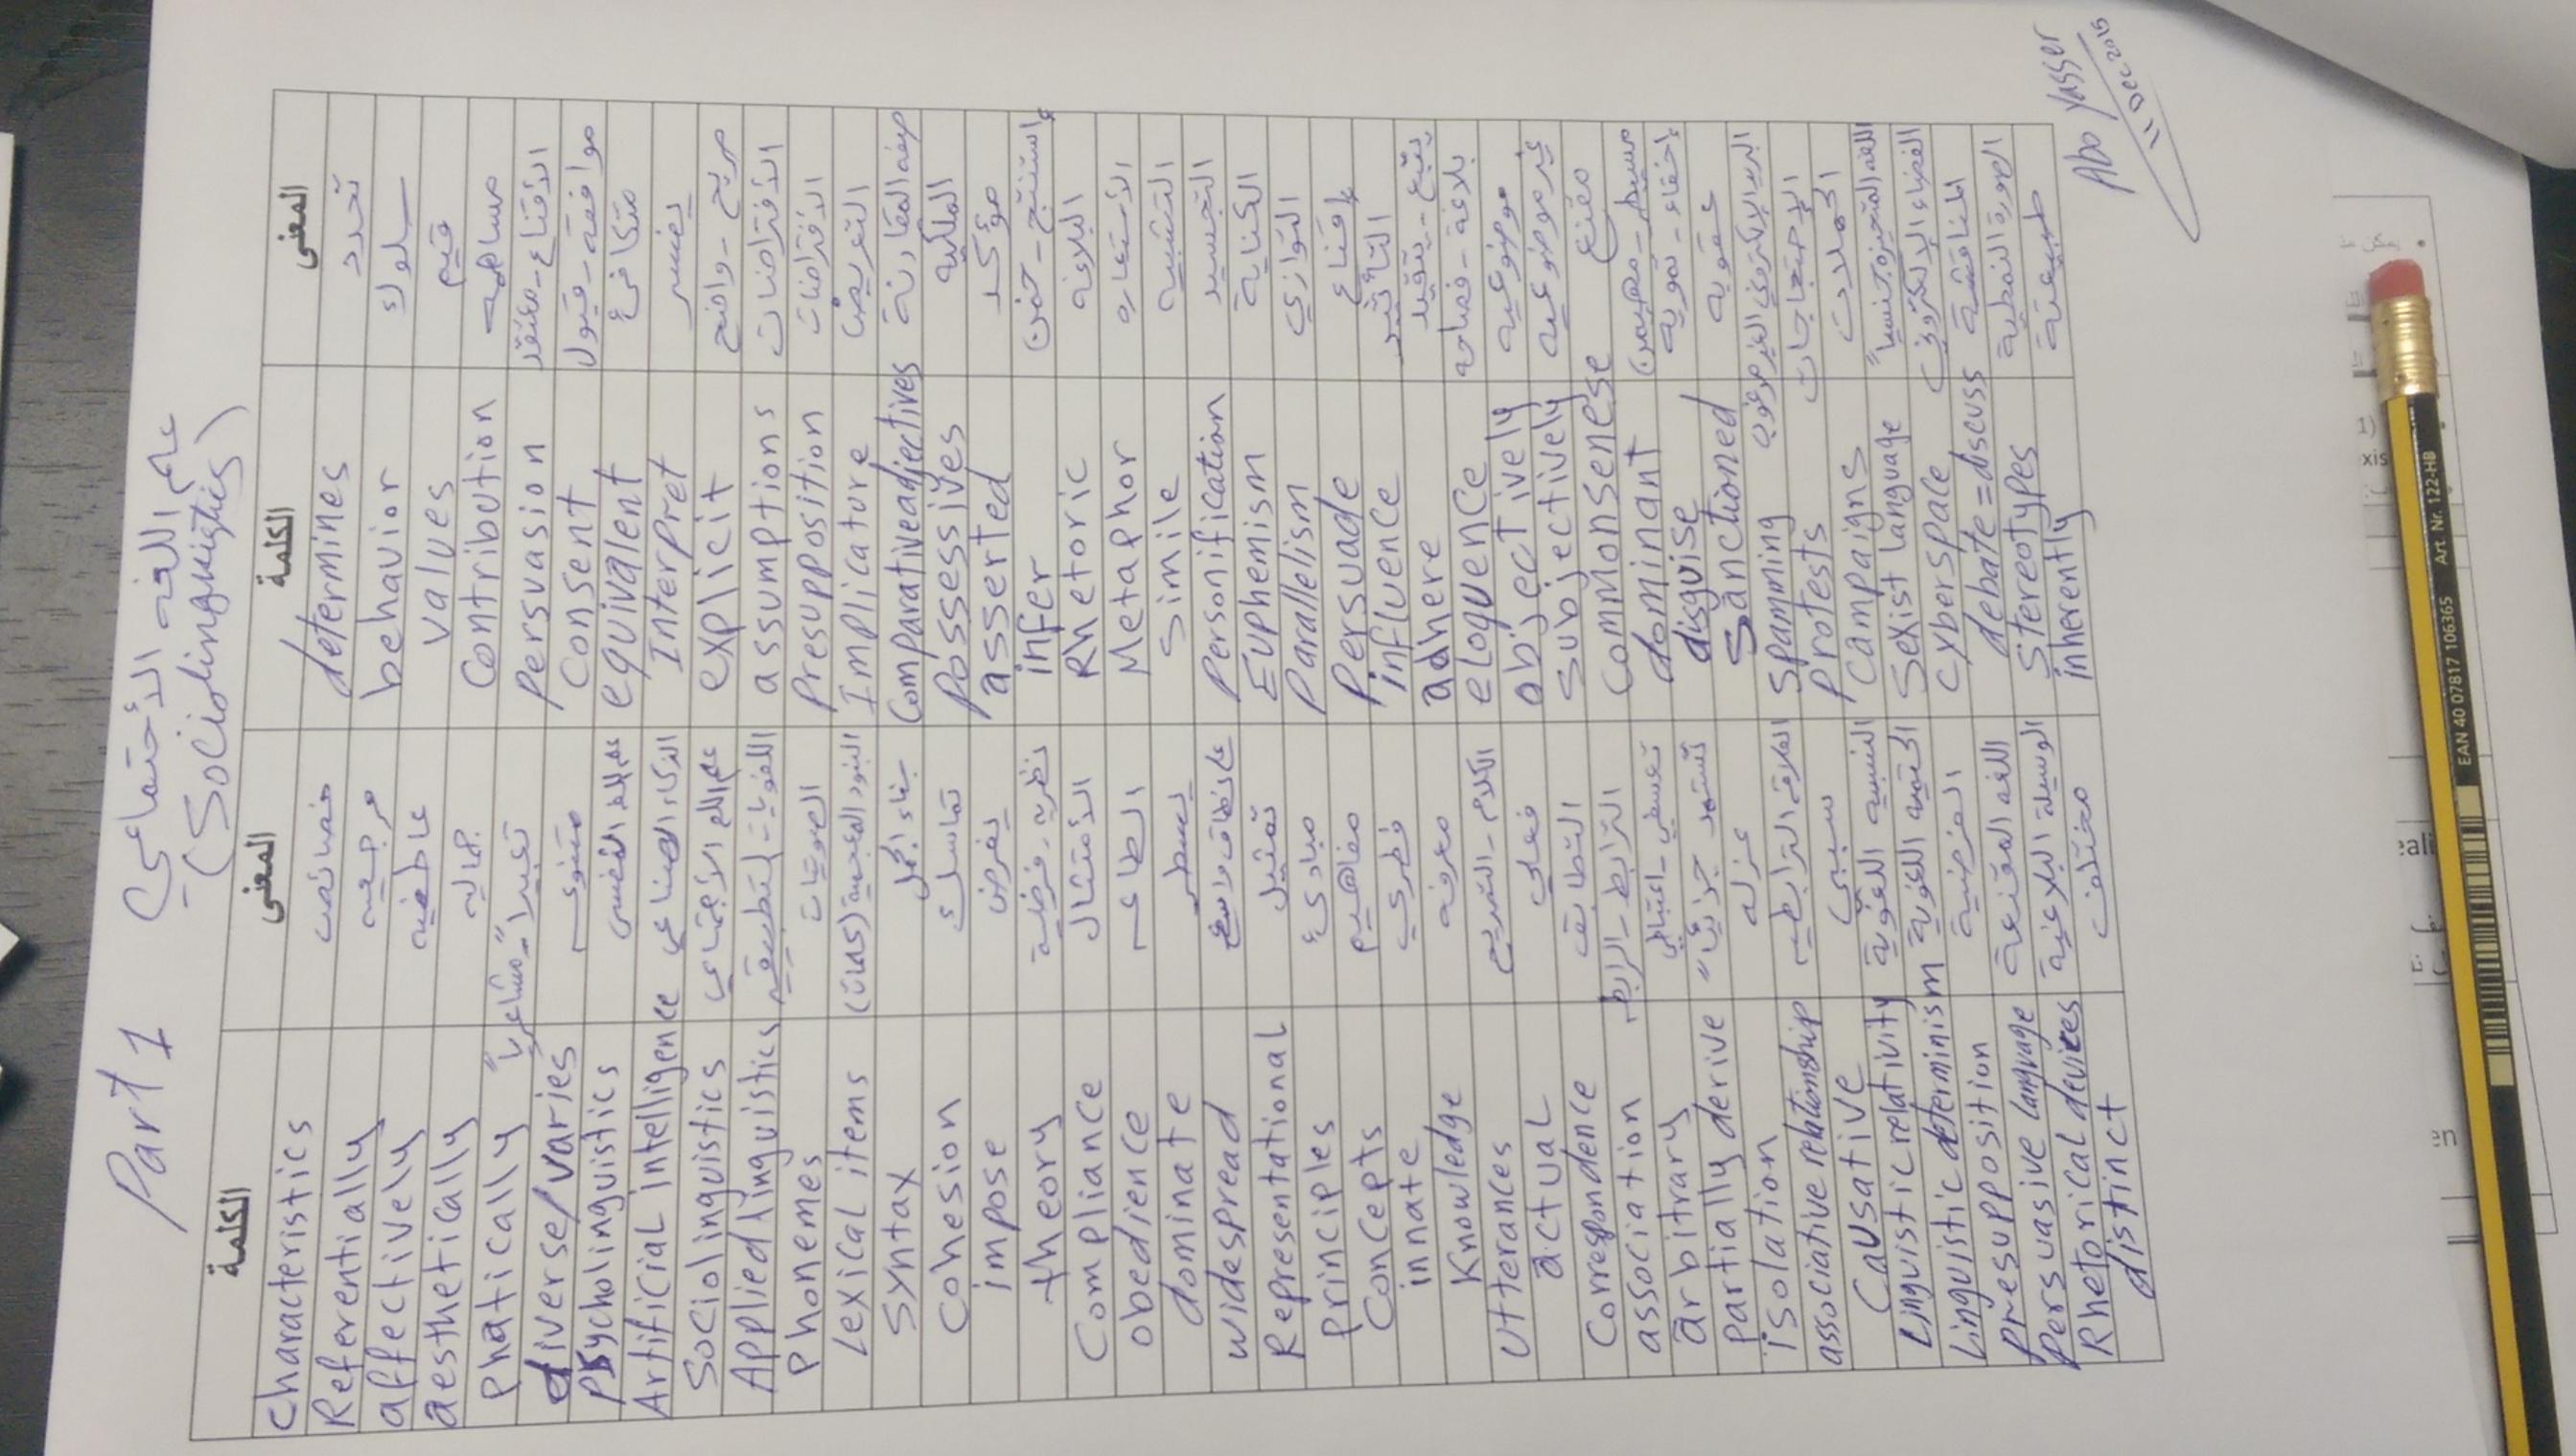 Part 1 علم اللغه الأجتماعي
(Sociolinguistics)
الكلمة المعنى الكلمة المعنى
Characteristics خصائص determines تحدد
Referentially مرجعيه behavior سلوك
affectively عاطفيه values قيم
aesthetically جماليه Contribution مساهمه
Phatically تعبيراً - مشاعرياً Persuasion الأقناع - معتقد
diverse/varies متنوع Consent موافقة - قبول
Psycholinguistics علم اللغة النفسي equivalent متكافئ
Artificial intelligence الذكاء الصناعي Interpret يفسر
Sociolinguistics علم اللغ الأجتماعي explicit صريح - واضح
Applied linguistics اللغويات التطبيقيه assumptions الأفتراضات
Phonemes الصوتيات Presupposition الأفتراضات
Lexical items البنود المعجمية (كلمات) Implicature التعريض
Syntax بناء الجمل Comparative adjectives صفه المقارنة
Cohesion تماسك Possessives الملكيه
impose يفرض asserted مؤكد
theory نظريه - فرضية infer إستنتج - خمن
Compliance الأمتثال Rhetoric البلاغه
obedience الطاعه Metaphor الأستعاره
dominate يسيطر Simile التشبيه
widespread على نطاق واسع Personification التجسيد
Representational تمثيل Euphemism الكناية
Principles مبادئ Parallelism التوازي
Concepts مفاهيم Persuade إقناع
innate فطري influence التأثير
Knowledge معرفه adhere يتبع - يتقيد
Utterances الكلام - التصريح eloquence بلاغة - فصاحه
actual فعلي objectively موضوعيه
Correspondence التطابق subjectively غير موضوعيه
association الترابط - الرابط Commonsense مقنع
arbitrary تعسفي - اعتباطي dominant مسيطر - مهيمن
Partially derive تستمد جزئياً disguise إخفاء - تمويه
isolation عزله Sanctioned عقوبه
associative relationship العلاقه الترابطيه Spamming البريد الإلكتروني الغير مرغوب
Causative سببي Protests الإحتجاجات
Linguistic relativity النسبيه اللغوية Campaigns الحملات
Linguistic determinism الحتميه اللغوية Sexist language اللغه المتحيزه جنسياً
presupposition الفرضية Cyberspace الفضاء الإلكتروني
Persuasive language اللغه المقنعة debate = discuss المناقشة
Rhetorical devices الوسيلة البلاغية Stereotypes الصورة النمطية
distinct مختلف inherently طبيعة
Abo Yasser
11 Dec 2015
EAN 40 07817 106365 Art. Nr. 122-HB